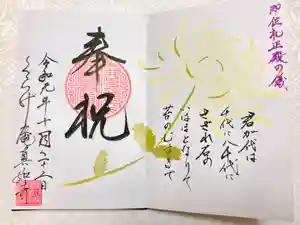 即位礼正殿の儀
君が代は
千代に八千代に
さざれ石の
いわほとなりて
苔のむすまで
奉祝
令和元年十月二十二日